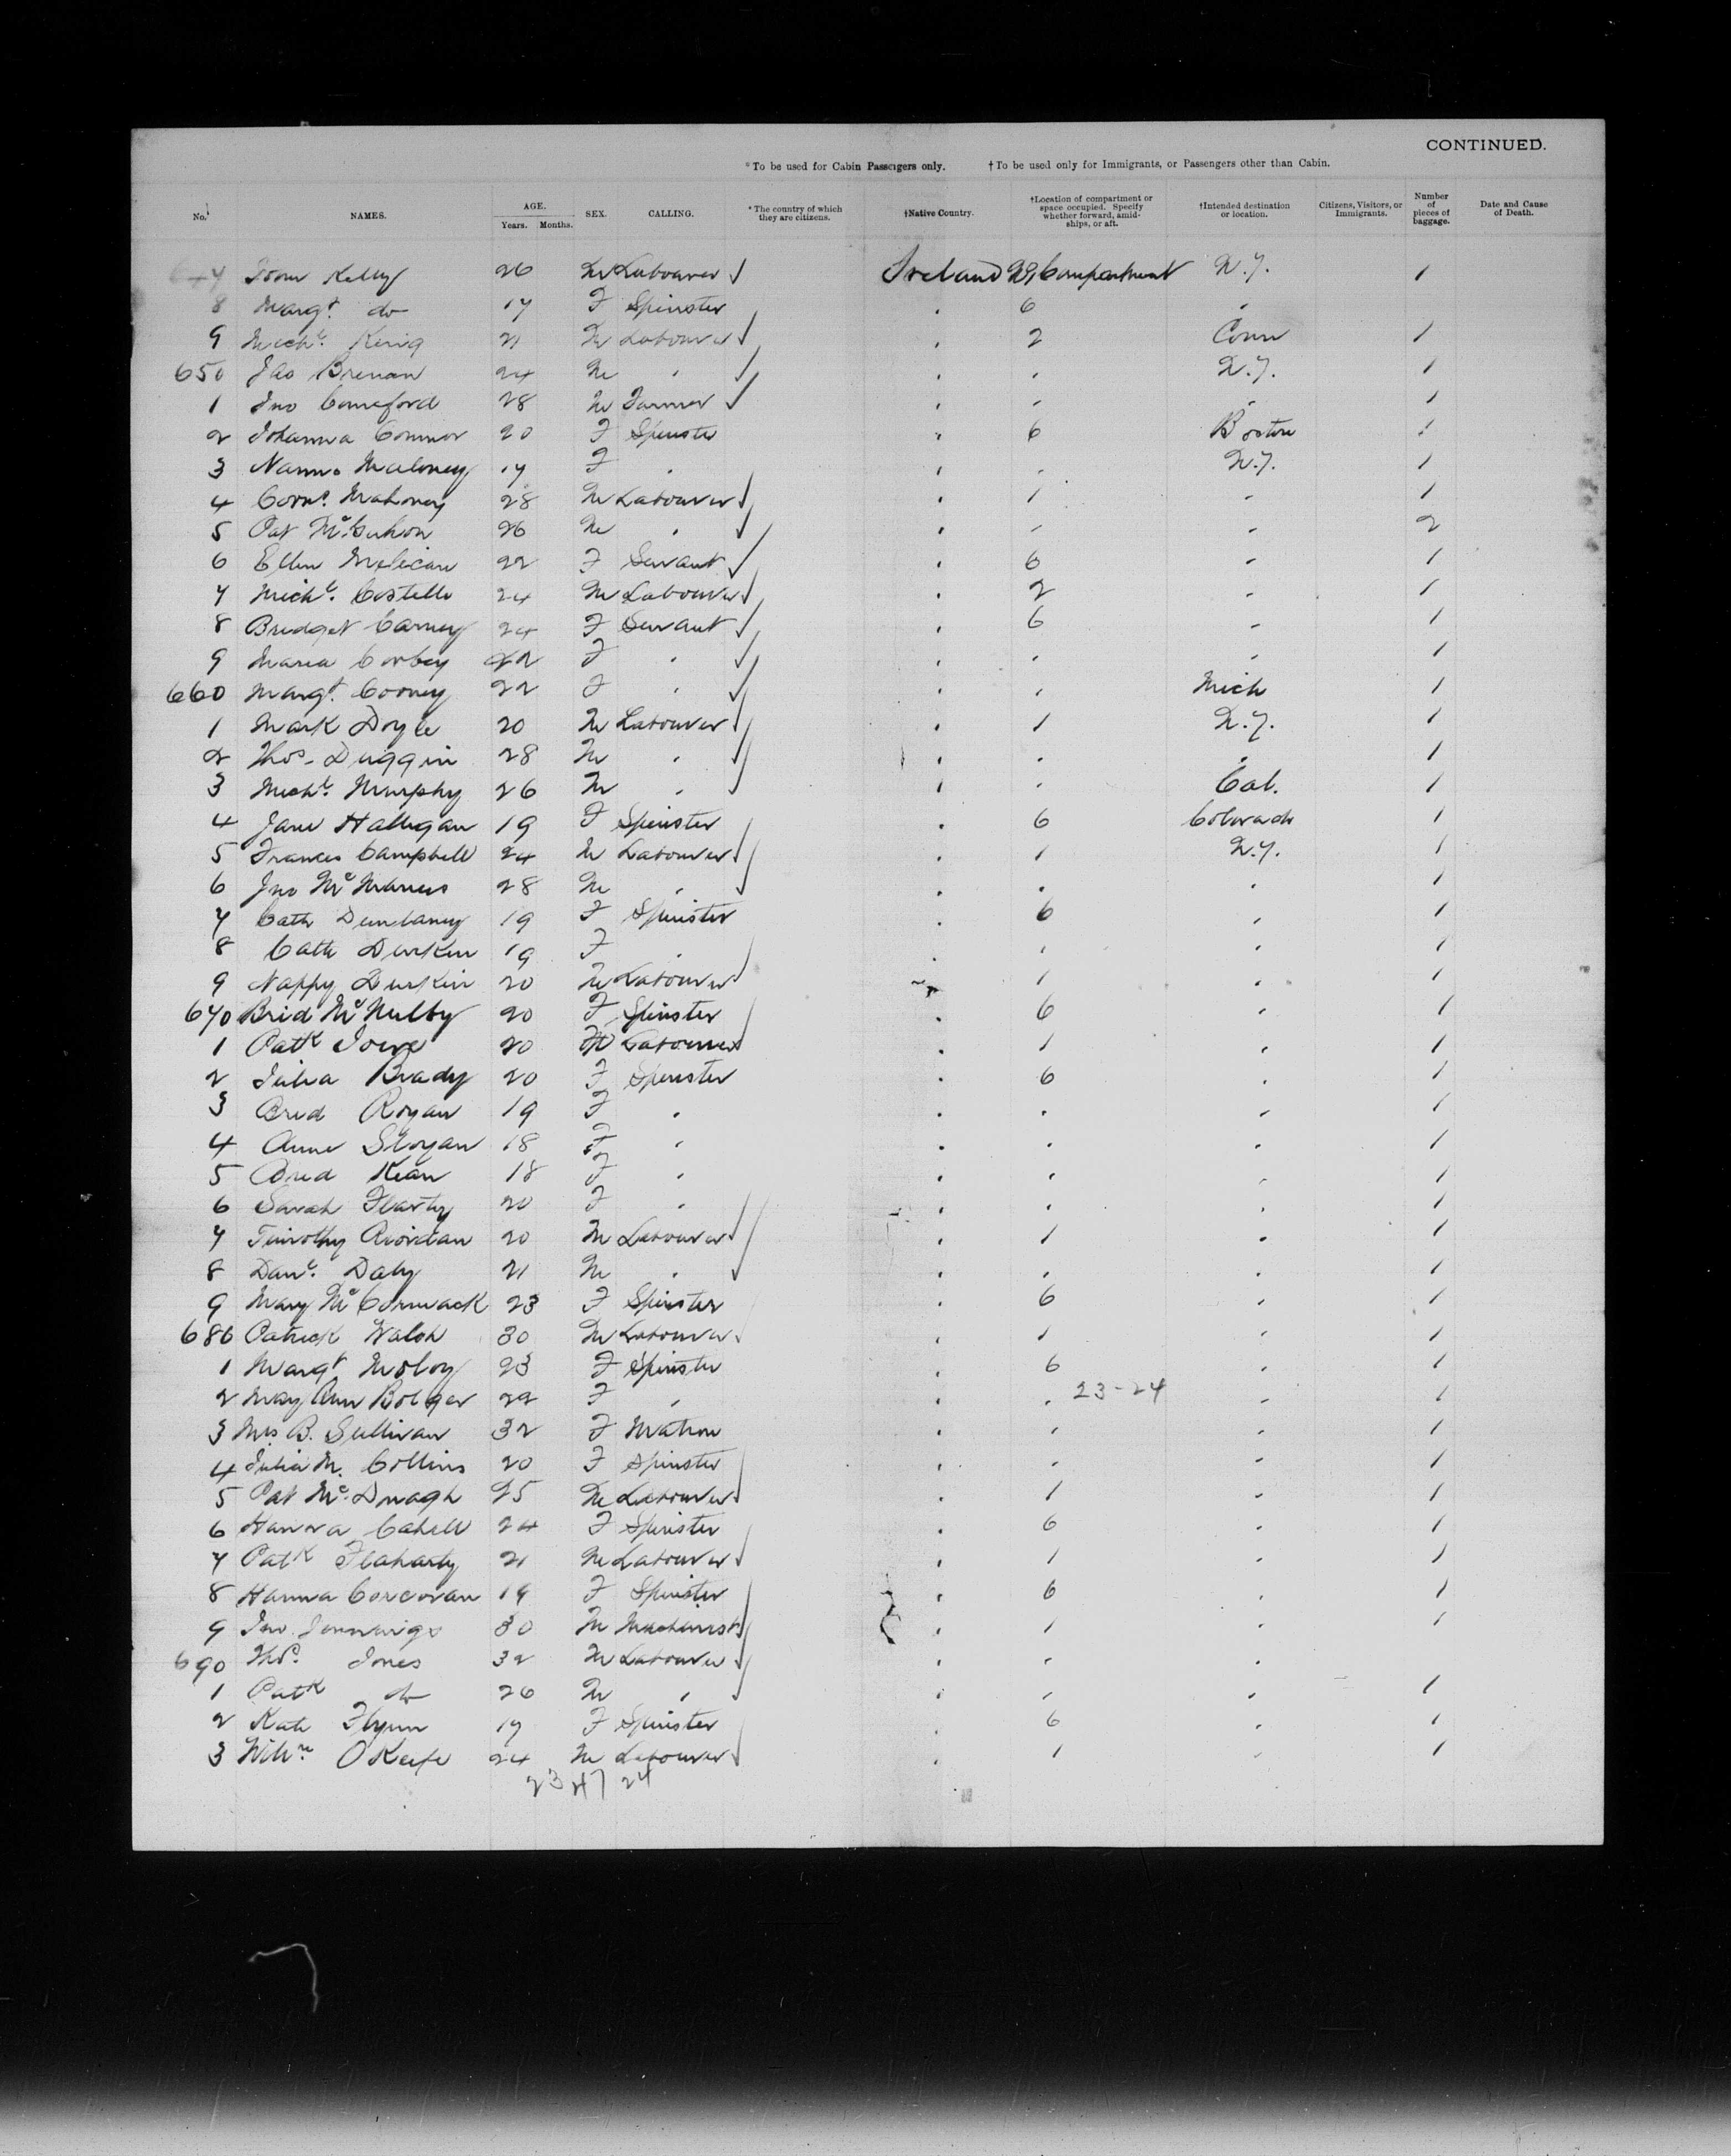 CONTINUED.
*To be used for Cabin Passengers only. †To be used only for Immigrants, or Passengers other than Cabin.
No. NAMES. AGE. Years. Months. SEX. CALLING. *The country of which they are citizens. †Native Country. †Location of compartment or space occupied. Specify whether forward, amidships, or aft. †Intended destination or location. Citizens, Visitors, or Immigrants. Number of pieces of baggage. Date and Cause of Death.
Kelly 26 M Labourer Ireland Compartment N.Y. 1
8 Margt. do 17 F Spinster " 6 "
9 Michl. King 21 M Labourer " 2 Conn 1
650 Jas Brenan 24 M " " " N.Y. 1
1 Jno Comeford 28 M Farmer " " " 1
2 Johanna Connor 20 F Spinster " 6 Boston 1
3 Maloney 17 F " " " N.Y. 1
4 Corns. Mahoney 28 M Labourer " 1 " 1
5 Pat 26 M " " " " 2
6 Ellen Melican 22 F Servant " 6 " 1
7 Michl. Costello 24 M Labourer " 2 " 1
8 Bridget Carney 24 F Servant " 6 " 1
9 Maria Corbey 22 F " " " " 1
660 Margt. Cooney 22 F " " " Mich 1
1 Mark Doyle 20 M Labourer " 1 N.Y. 1
2 Thos. Duggin 28 M " " " " 1
3 Michl. Murphy 26 M " " " Cal. 1
4 Jane Halligan 19 F Spinster " 6 Colorado 1
5 Frances Campbell 24 M Labourer " 1 N.Y. 1
6 Jno McManus 28 M " " " " 1
7 Cath 19 F Spinster " 6 " 1
8 Cath Durkin 19 F " " " " 1
9 Nappy Durkin 20 M Labourer 1 " 1
670 Brid McNulty 20 F Spinster " 6 " 1
1 Patk Joyce 20 M Labourer " 1 " 1
2 Julia Brady 20 F Spinster " 6 " 1
3 Brid Rogan 19 F " " " " 1
4 Anne Slogan 18 F " " " " 1
5 Bred Kean 18 F " " " " 1
6 Sarah Flarty 20 F " " " " 1
7 Timothy Riordan 20 M Labourer " 1 " 1
8 Danl. Daly 21 M " " " " 1
9 Mary McCormack 23 F Spinster " 6 " 1
680 Patrick Walsh 30 M Labourer " 1 " 1
1 Margt Moloy 23 F Spinster " 6 " 1
2 May Ann Bolger 22 F " " " 23-24 " 1
3 Mrs B. Sullivan 32 F Matron " " " 1
4 Julia M. Collins 20 F Spinster " " " 1
5 Pat McDonagh 25 M Labourer " 1 " 1
6 Hanora Cahill 24 F Spinster " 6 " 1
7 Patk Flaharty 21 M Labourer " 1 " 1
8 Hanna Corcoran 19 F Spinster " 6 " 1
9 Jno. Jennings 30 M Machinist " 1 " 1
690 Thos. Jones 32 M Labourer " " "
1 Patk do 26 M " " " " 1
2 Kate Flynn 17 F Spinster " 6 " 1
3 Willm O'Keefe 24 M Labourer " 1 " 1
23 47 24